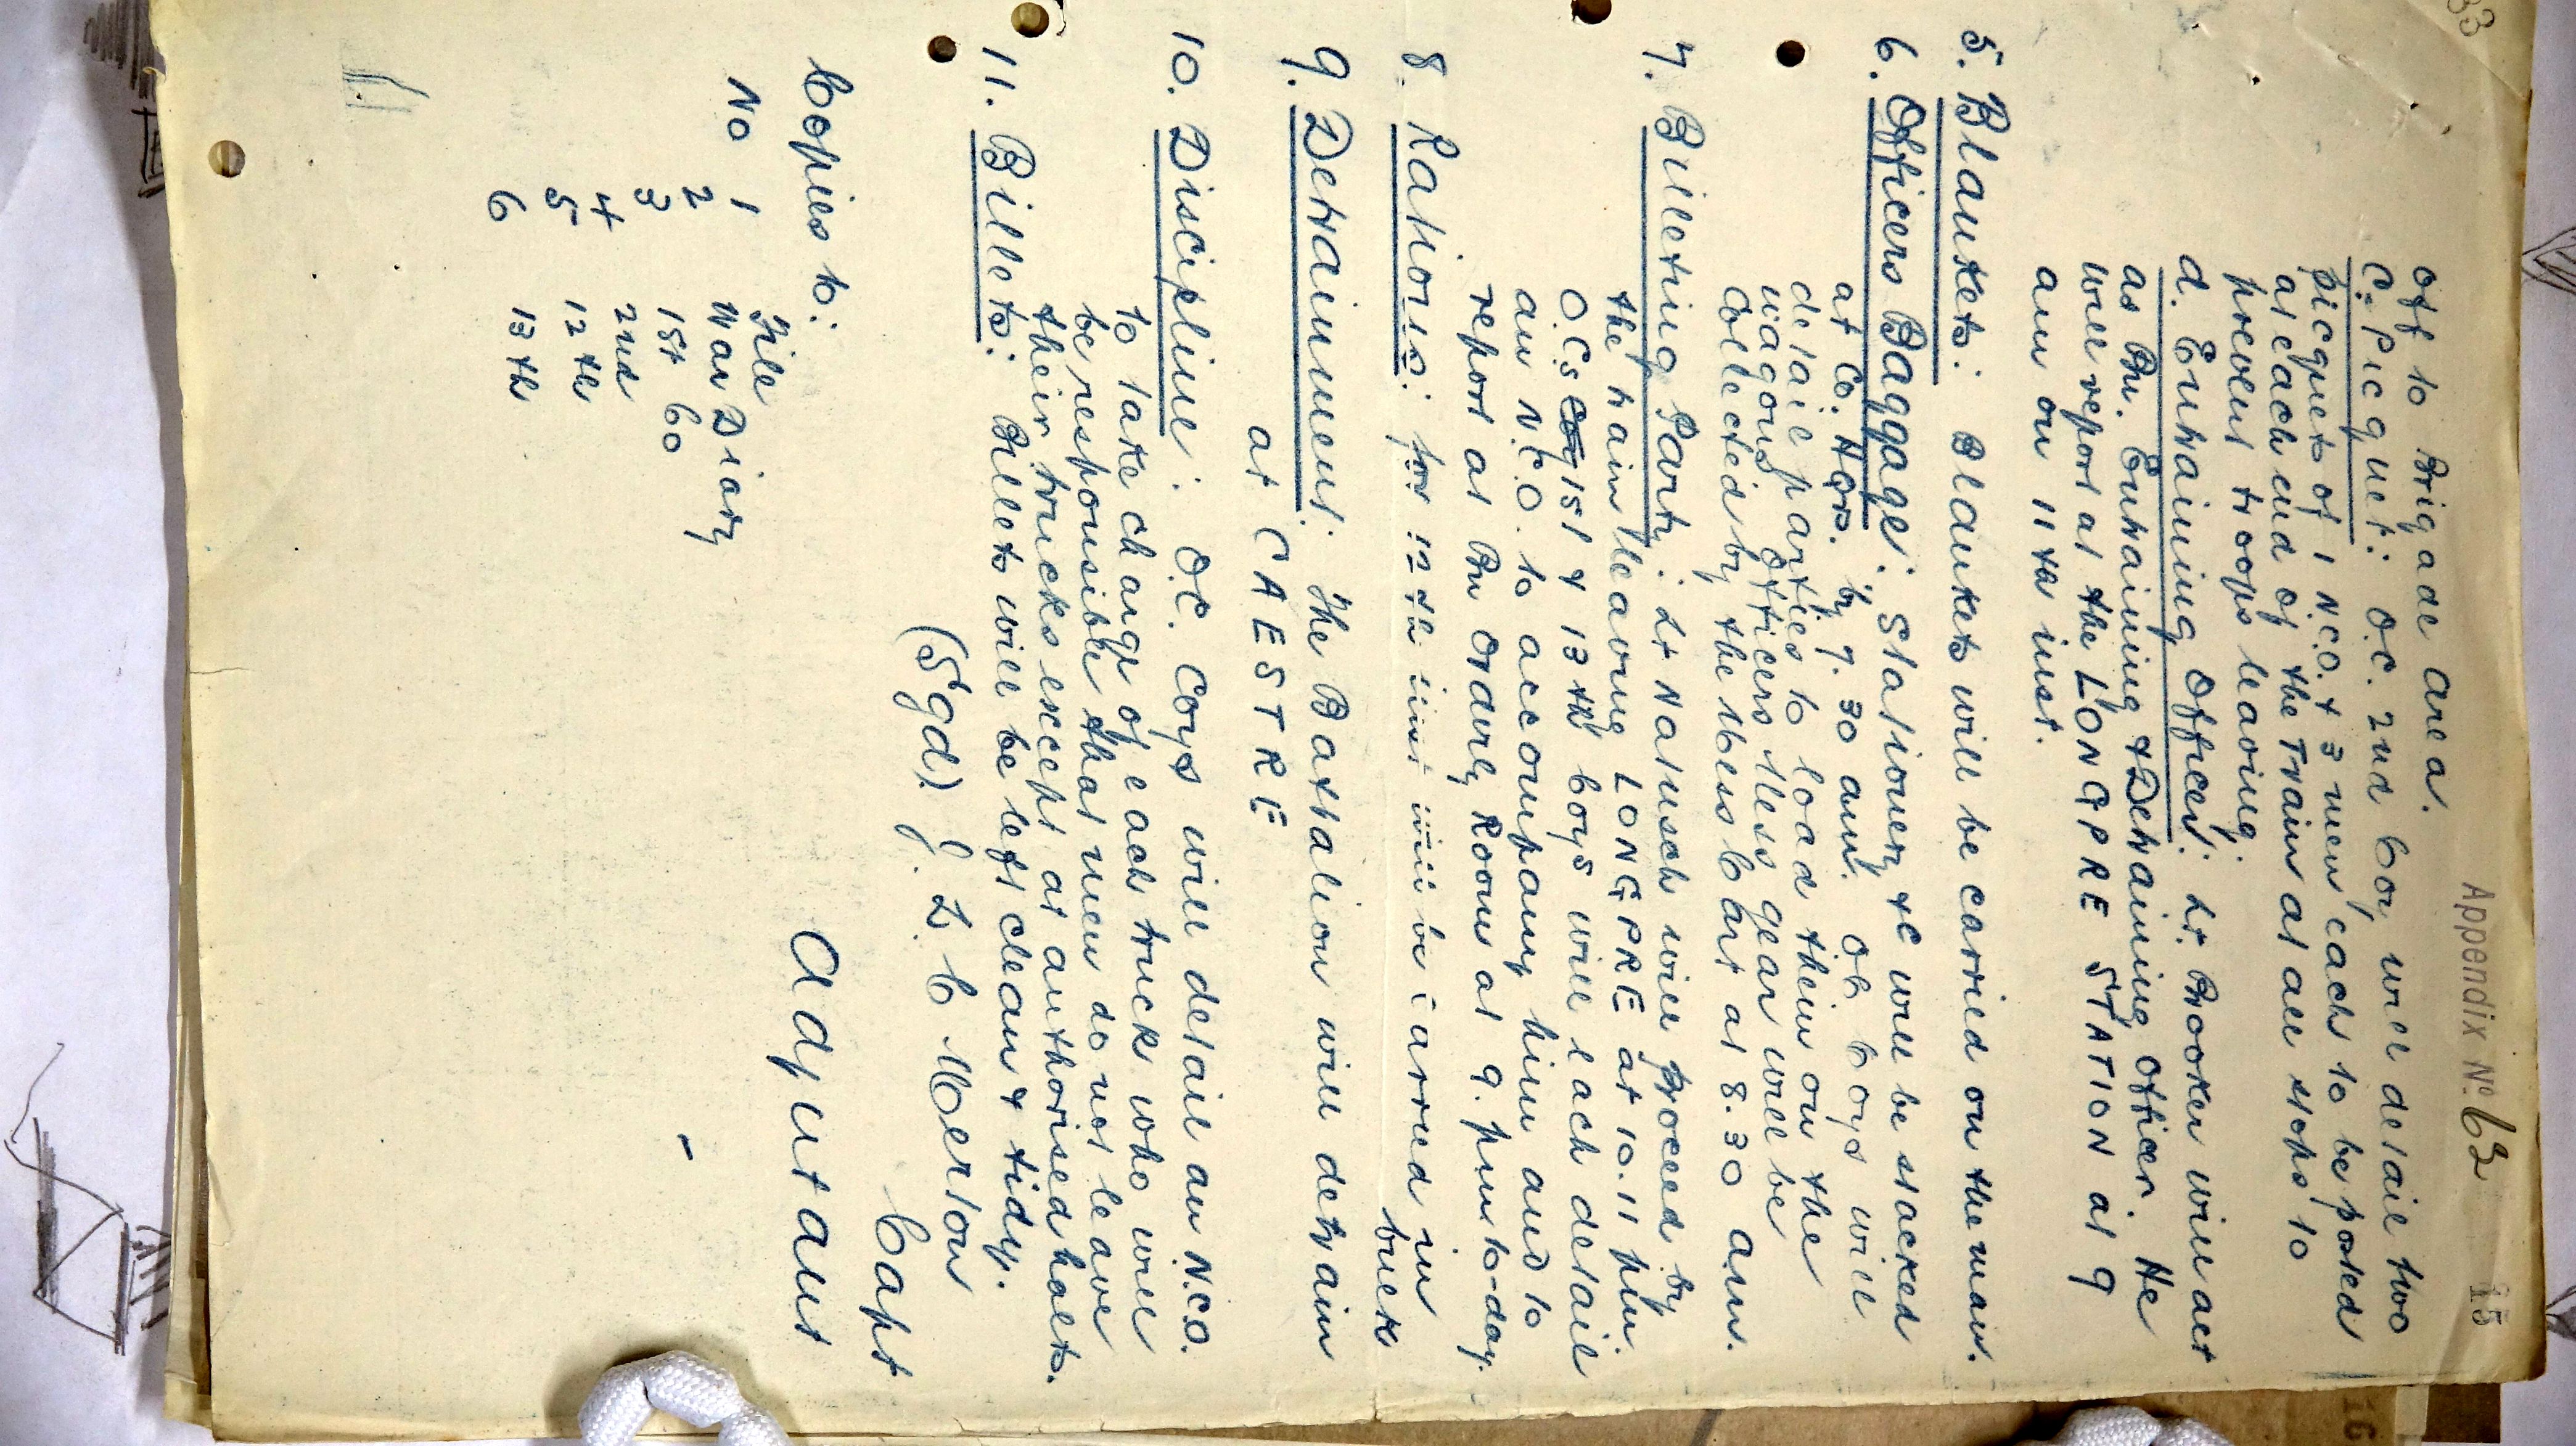 33
Appendix No. 63 15
off to Brigade area.
C. Picquet: O.C. 2nd Coy will detail two
picquets of 1 N.C.O. & 3 men each to be posted
at each end of the Train at all stops to
prevent troops leaving.
d. Entraining Officer: Lt. Brooker will act
as Bn. Entraining & Detraining Officer. He
will report at the LONGPRE STATION at 9
am on 11th inst.
5. Blankets: Blankets will be carried on the man.
6. Officers Baggage: Stationery &c will be stacked
at Co. Hqrs. by 7.30 am. OC Coys will
detail parties to load them on the
wagons Officers Mess gear will be
collected by the Mess Cart at 8.30 am.
7. Billeting Party: Lt Natusch will proceed by
the train leaving LONGPRE at 10.11 pm
O.Cs Coy 1st & 13th Coys will each detail
an N.C.O. to accompany him and to
report at Bn Orderly Room at 9. pm to-day.
8. Rations: for 12th inst will be carried in
bulk
9. Detrainment: The Battalion will detrain
at CAESTRE
10. Discipline: O.C. Coys will detail an N.C.O.
to take charge of each truck who will
be responsible that men do not leave
their trucks except at authorised halts.
11. Billets: Billets will be left clean & tidy.
(Sgd) J. L. C Merton
Capt
Adjutant
Copies to:
File
No 1 War Diary
2 1st Co
3 2nd
4 12th
5 13th
6
16